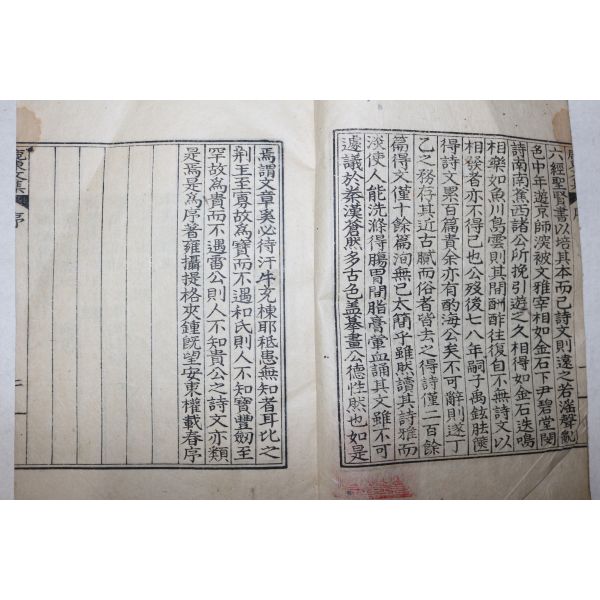 六經聖賢書以培其本而已詩文則遠之若滛聲亂
色中年遊京師深被文雅宰相如金石下尹碧堂閔
詩南南蕉西諸公所挽引遊之久相得如金石迭鳴
相樂如魚川島雲則其間酬酢往復自不無詩文以
相發者亦不得已也公殁後七八年嗣子禹鉉胠篋
得詩文累百篇責余亦有酌海公矣不可辭則遂丁
乙之務存其近古膩而俗者皆去之得詩僅二百餘
篇得文僅十餘篇洵無已太簡乎雖然讀其詩雅而
淡使人能洗滌得膓胃間脂膏葷血誦其文雖不可
遽議於秦漢蒼然多古色盖摹畫公德性然也如是
焉謂文章奚必待汗牛充棟耶秪患無知者耳比之
荆王至寡故為寶而不遇和氏則人不知寶豐劒至
罕故為貴而不遇雷公則人不知貴公之詩文亦類
是焉是為序著雍攝提格夾鍾旣望安東權載春序
文集
序
二